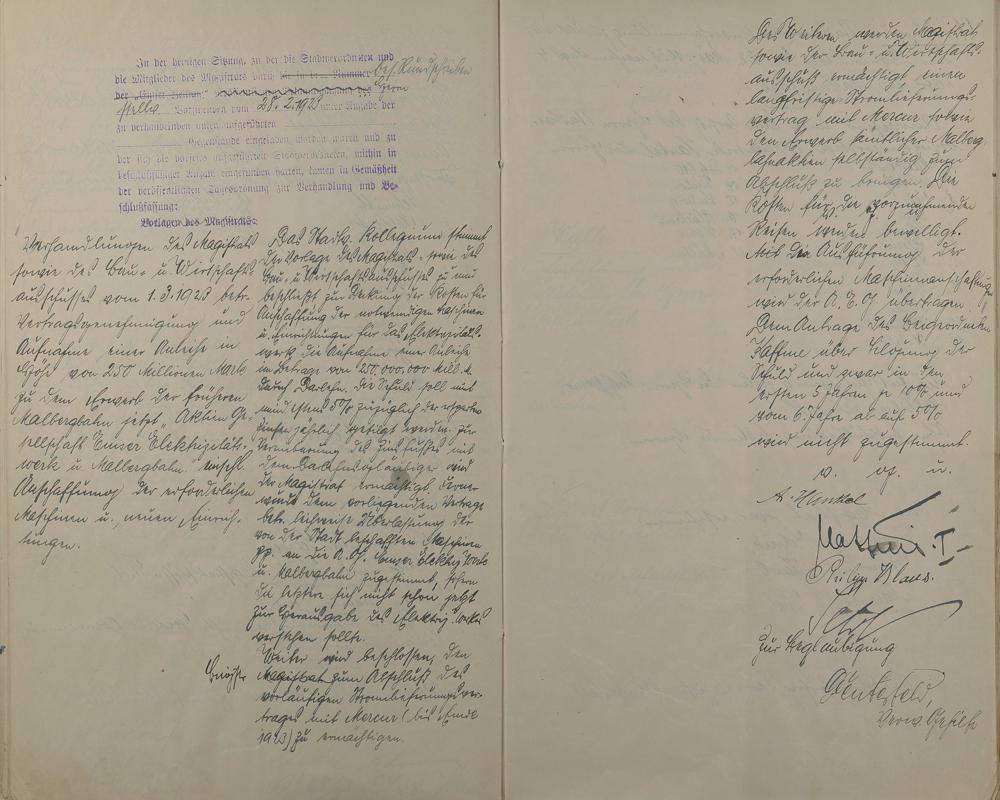 In der heutigen Sitzung, zu der die Stadtverordneten und
die Mitglieder des Magistrats durch die in der Nummer bes. Rundschreiben
der „Emser Zeitung“
stellv. Vorsitzenden vom 28. 2. 1923 unter Angabe der
zu verhandelnden unten aufgeführten
Gegenstände eingeladen worden waren und zu
der sich die vorseits aufgeführten Stadtverordneten, mithin in
beschlußfähiger Anzahl eingefunden haben, kamen in Gemäßheit
der veröffentlichten Tagesordnung zur Verhandlung und Be-
schlußfassung:
Vorlagen des Magistrats:
Verhandlungen des Magistrats
sowie des Bau- u Wirtschafts
ausschusses vom 1. 3. 1923 betr.
Vertragsgenehmigung und
Aufnahme einer Anleihe in
Höhe von 250 Millionen Mark
zu dem Erwerb der früheren
Malbergbahn jetzt „Aktien Ge-
sellschaft Emser Elektrizitäts-
werk u Malbergbahn“ einschl.
Anschaffung der erforderlichen
Maschinen u. neuen Einrich-
tungen.
Das Stadtv. Kollegium stimmt
der Vorlage des Magistrats, sowie des
Bau- u Wirtschaftsausschusses zu und
beschließt zur Deckung der Kosten für
Anschaffung der notwendigen Maschinen
u. Einrichtungen für das Elektrizitäts-
werk die Aufnahme einer Anleihe
im Betrage von 250.000.000 Mill. M.
durch Darlehn. Die Schuld soll mit
mindestens 5% zuzüglich der ersparten
Zinsen jährlich getilgt werden. Zu
Vereinbarung des Zinsfußes mit
dem Darlehnsgläubiger wird
der Magistrat ermächtigt. Ferner
wurde dem vorliegenden Vertrage
betr. leihweise Überlassung der
von der Stadt beschafften Maschinen
pp. an die A. G. Emser Elektriz. Werk
u. Malbergbahn zugestimmt, sofern
die letztere sich nicht schon jetzt
zur Herausgabe des Elektriz. Werkes
verstehen sollte.
Weiter wird beschlossen, den
Magistrat zum Abschluß des
vorläufigen Stromlieferungsver-
trages mit Mercur (bis Ende
1923) zu ermächtigen.
Des Weitern werden Magistrat
sowie der Bau- u. Wirtschafts-
ausschuß ermächtigt einen
langfristigen Stromlieferungs-
vertrag mit Mercur sowie
den Erwerb sämtlicher Malberg
bahnakten selbständig zum
Abschluß zu bringen. Die
Kosten für die vorzunehmenden
Reisen werden bewilligt.
Mit der Ausführung der
erforderlichen Maschinenanschaffungen
wird der A. E. G. übertragen.
Dem Antrage des Beigeordneten
Kaffine über Tilgung der
Schuld und zwar in den
ersten 5 Jahren je 10% und
vom 6 Jahre ab auf 5%
wird nicht zugestimmt.
v. g. u.
A. Hankel
I.
Philipp Klaus.
Zur Beglaubigung
Güntersfeld,
Verw. Gehilfe